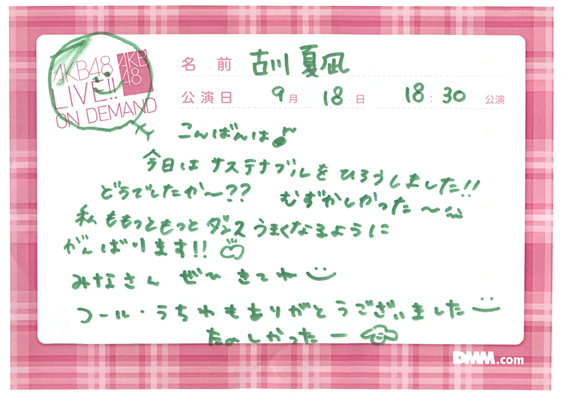 AKB48
LIVE!!
ON DEMAND
AKB
48
名前 古川夏凪
公演日 9月 18日 18:30 公演
こんばんは♪
今日は サステナブルを ひろうしました!!
どうでしたか〜?? むずかしかった〜
私ももっともっと ダンス うまくなるように
がんばります!!
みなさん ぜひ きてね
コール・うちわもありがとうございました
たのしかったー
DMM.com